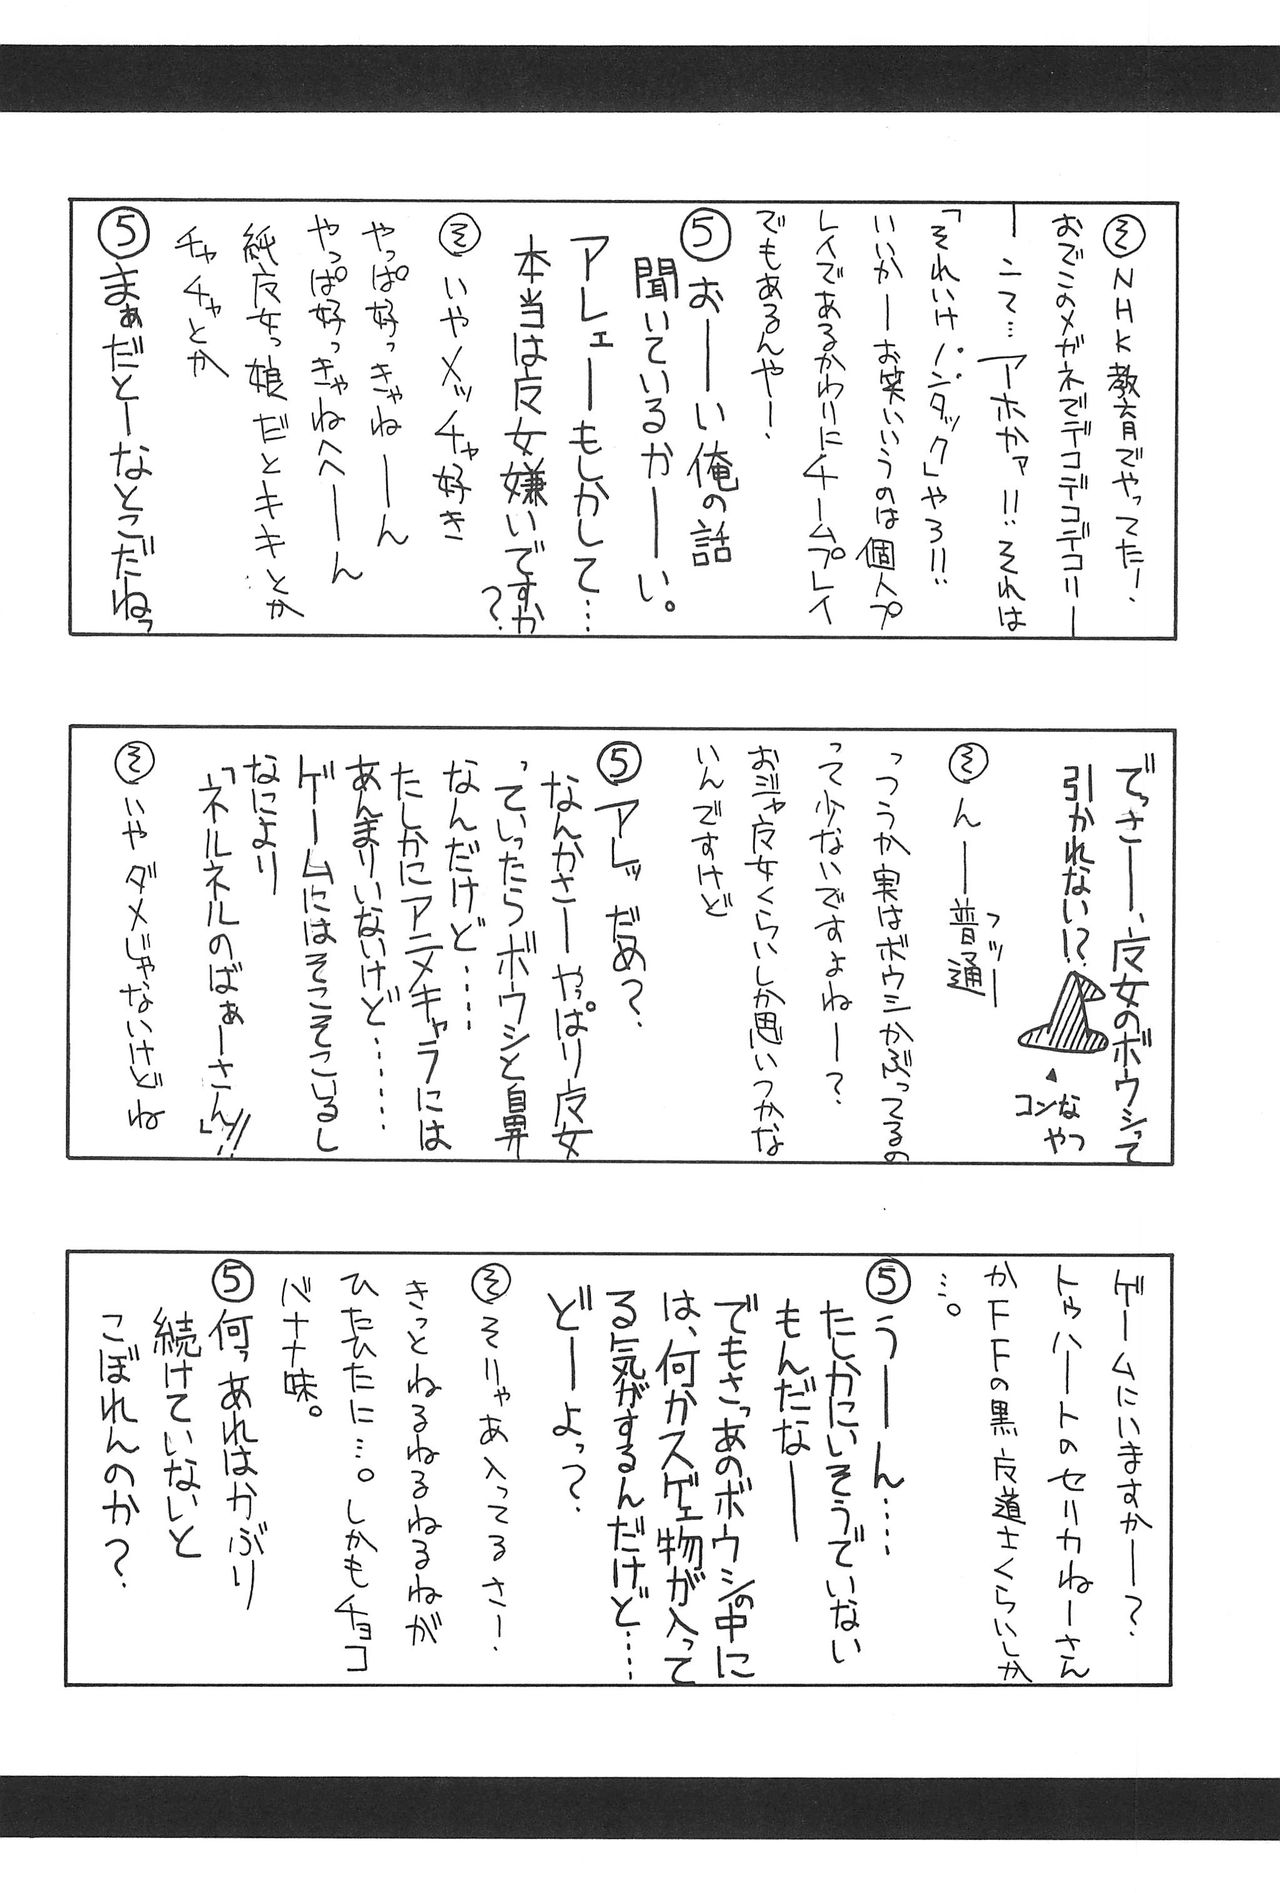 ㋞NHK教育でやってた！
おでこのメガネでデコデコデコリー
ーニて…アーホかァ!!それは
「それいけノンタック」やろ!!
いいかーお笑いいうのは個人プ
レイであるかわりにチームプレイ
でもあるんやー！
⑤おーい俺の話
聞いているかーい。
アレェーもしかして…
本当は魔女嫌いですか
？
㋞いやメッチャ好き
やっぱ好っきゃねーん
やっぱ好っきゃねへーん
純魔女っ娘だとキキとか
チャチャとか
⑤まぁだとーなとこだねっ
でっさー、魔女のボウシって
引かれない!?
コンな
やつ
㋞んー普通
フツー
っつうか実はボウシかぶってるの
って少ないですよねー？
おジャ魔女くらいしか思いつかな
いんですけど
⑤アレッだめ？
なんかさーやっぱり魔女
っていったらボウシと自昇
なんだけど……
たしかにアニメキャラには
あんまりいないけど………
ゲームにはそこそこいるし
なにより
「ネルネルのばぁーさん」!!
㋞いやダメじゃないけどね
ゲームにいますかー？
トゥハートのセリカねーさん
かFFの黒魔道士くらいしか
…。
⑤うーん……
たしかにいそうでいない
もんだなー
でもさっあのボウシの中に
は、何かスゲェ物が入って
る気がするんだけど……
どーよっ？
㋞そりゃあ入ってるさー！
きっとねるねるねるねが
ひたひたに…。しかもチョコ
バナナ味。
⑤何っあれはかぶり
続けていないと
こぼれんのか？